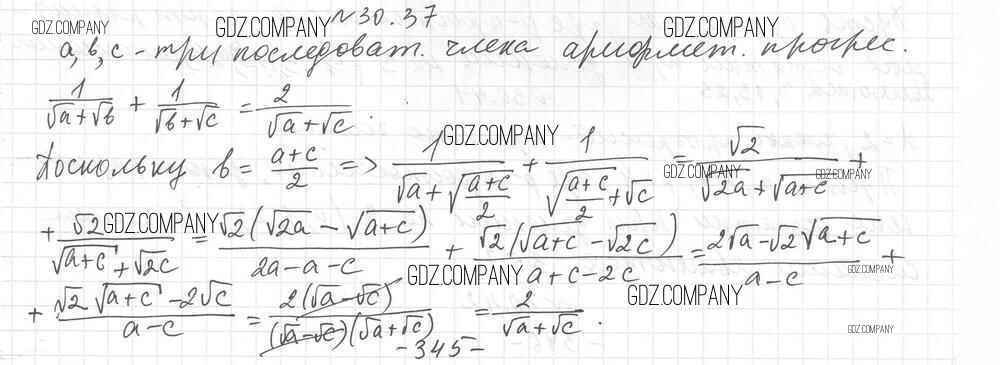 №30.37
GDZ.COMPANY GDZ.COMPANY GDZ.COMPANY
a, b, c - три последоват. члена арифмет. прогрес.
1/(√a+√b) + 1/(√b+√c) = 2/(√a+√c).
GDZ.COMPANY
Поскольку b = (a+c)/2 => 1/(√a+√((a+c)/2)) + 1/(√((a+c)/2)+√c) = √2/(√2a+√(a+c)) +
GDZ.COMPANY GDZ.COMPANY
GDZ.COMPANY
+ √2/(√(a+c)+√2c) = √2(√2a-√(a+c))/(2a-a-c) + √2(√(a+c)-√2c)/(a+c-2c) = (2√a-√2√(a+c))/(a-c) +
GDZ.COMPANY GDZ.COMPANY
GDZ.COMPANY
+ (√2√(a+c)-2√c)/(a-c) = 2(√a-√c)/((√a-√c)(√a+√c)) = 2/(√a+√c).
GDZ.COMPANY
-345-